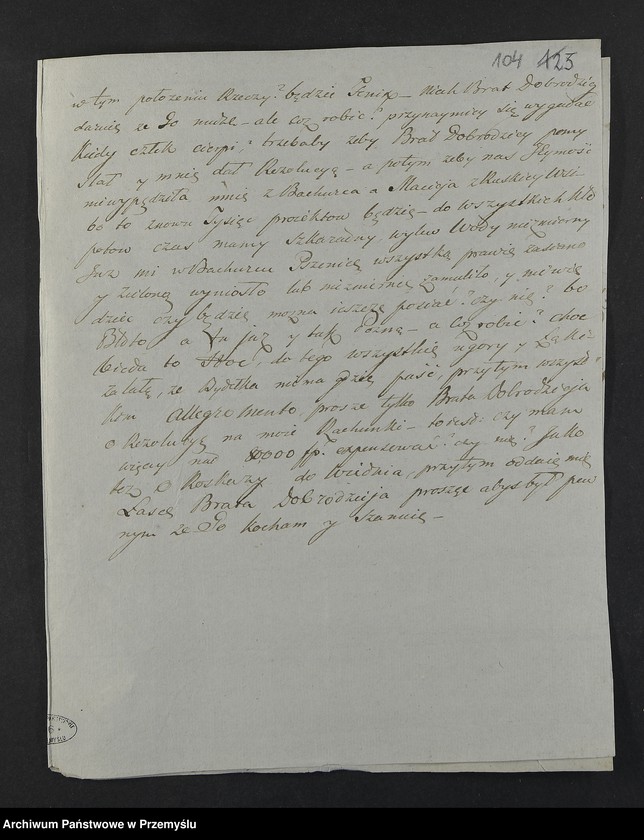 104 123
w tym położeniu Rzeczy? będzie Fenix – niech Brat Dobrodziey
daruie ze Go nudzę – ale coż robić? przynaymniey się wygadać
kiedy człek cierpi; trzebaby żeby Brat Dobrodziey pomy
slał y mnie dał Rezolucyę – a potym zeby nas Jeymość
niewypędziła mnie z Bachurca a Macieja z Ruskiey Wsi
bo to znowu Tysiąc proiektow będzie – do wszystkich kło
potow czas mamy szkaradny, wylew Wody niezmierny
Juz mi w Bachurcu Pszenicę wszystką prawie zasianą
y zieloną wyniosło lub niezmiernie zamuliło, y nie wie
dzieć czy będzie mozna ieszcze posiać? czy nie? bo
Błoto, a tu juz y tak pozno – a coż robić? choc
bieda to, do tego wszystkie ugory y Łąki
zalałę, ze Bydełka nima gdzie paść, przytym wszyst
kim Allegramente, prosze tylko Brata Dobrodzieja
o Rezolucyę na moie Rachunki – toiest: czy mam
więcey nad 8000 fr. expensować? czy nie? Jako
tez o Roskazy do Widnia, przytym oddaię mię
Łasce Brata Dobrodzieja proszęc abys był pew
nym ze Go Kocham y Szanuię –
Archiwum Państwowe w Przemyślu